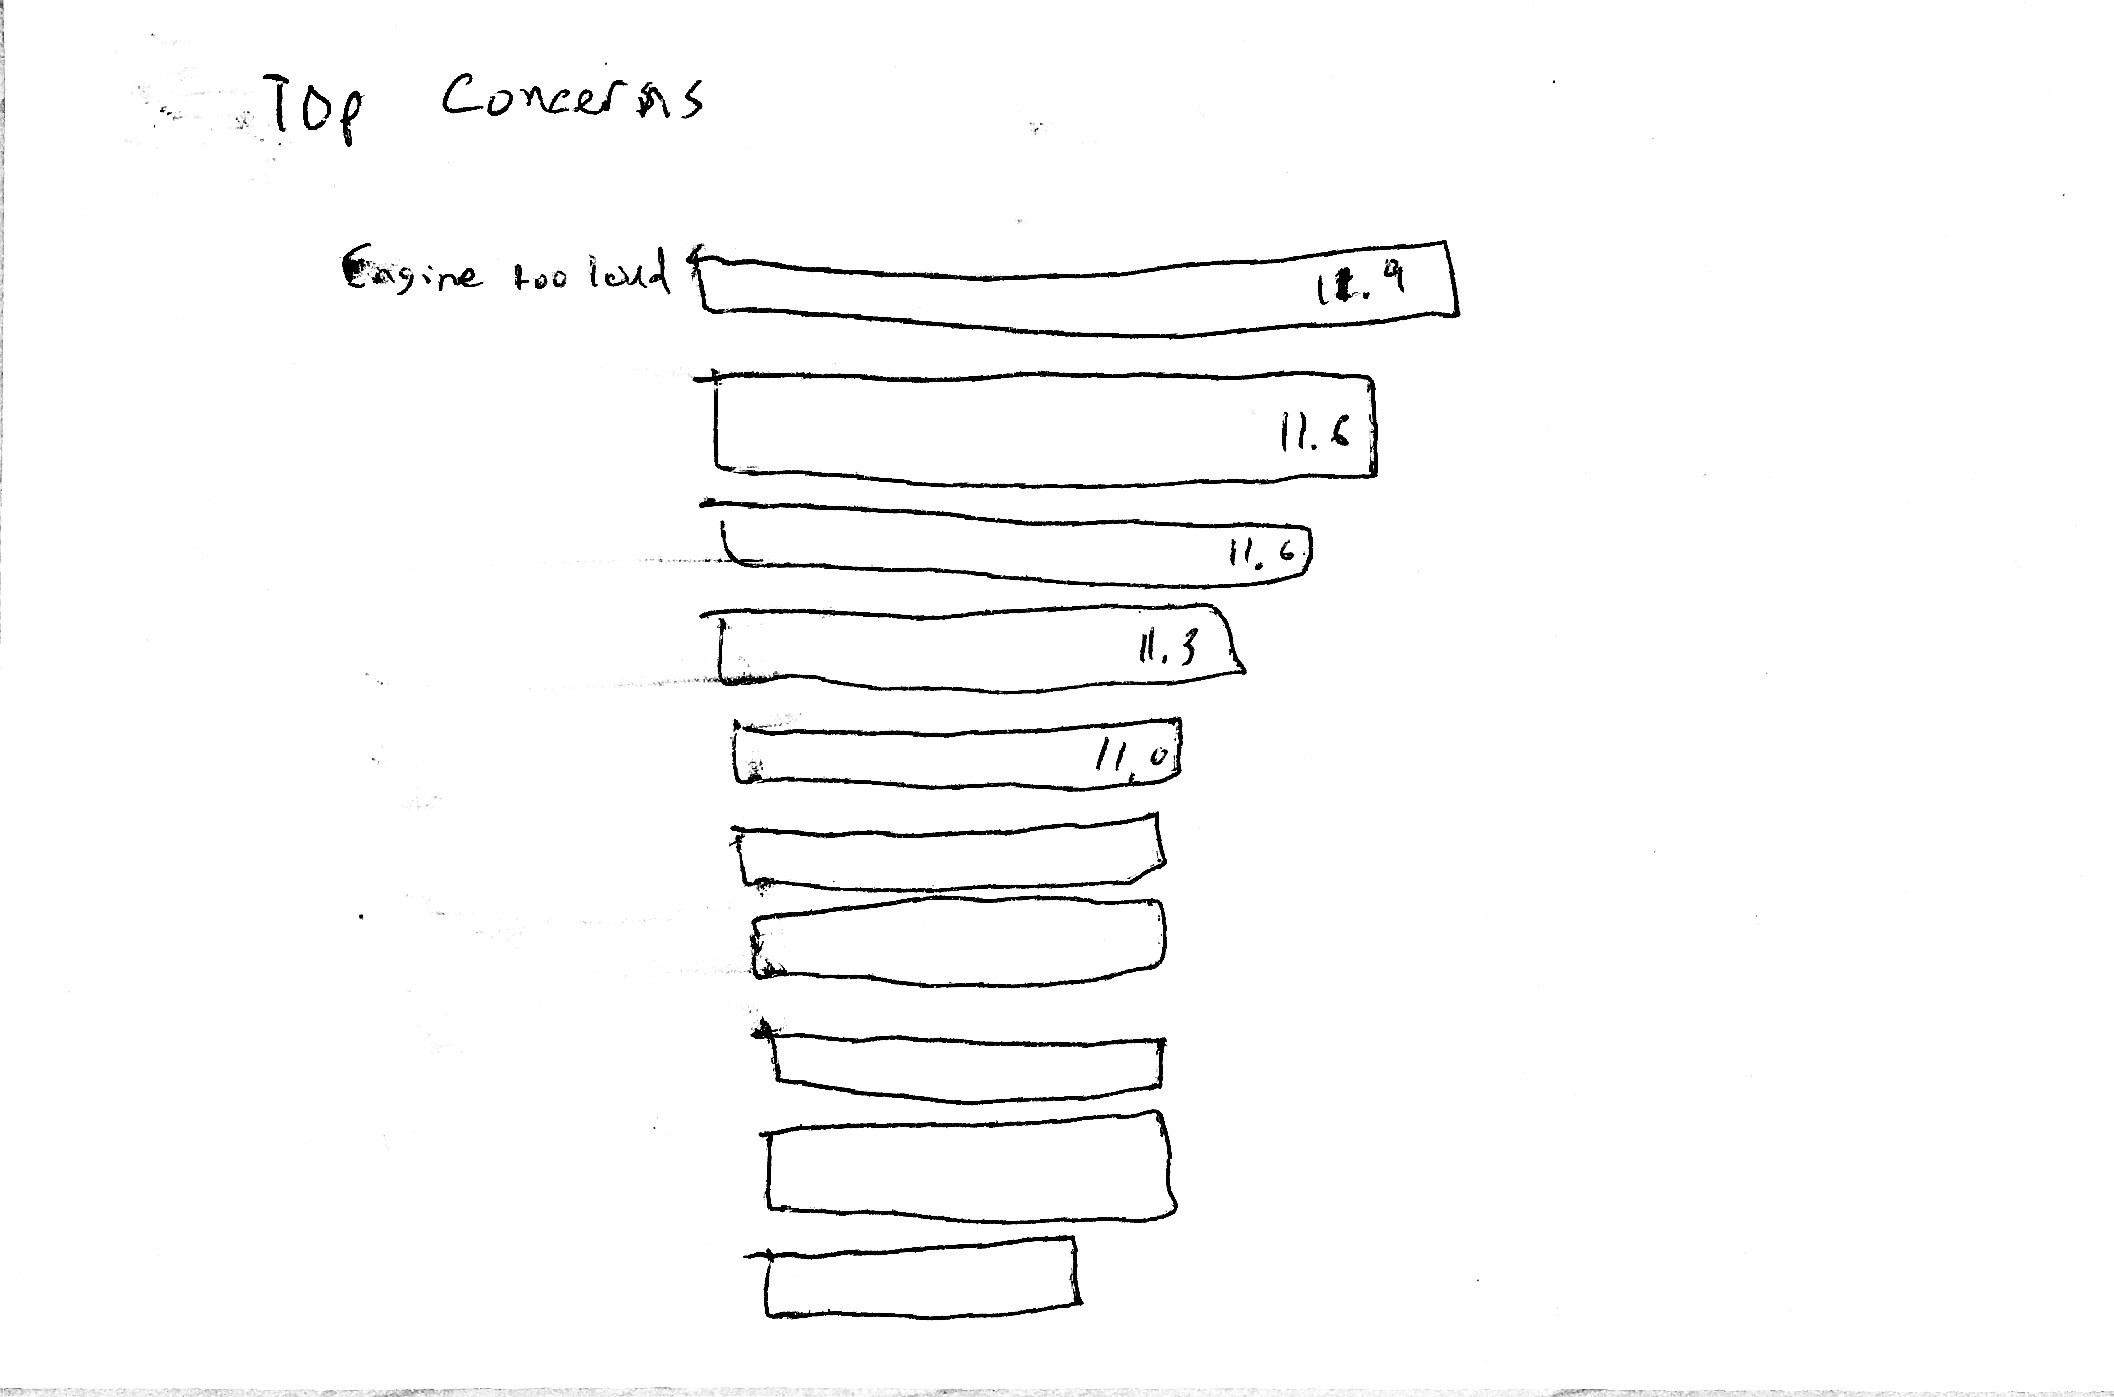 Top Concerns
Engine too loud 11.9
11.6
11.6
11.3
11.0